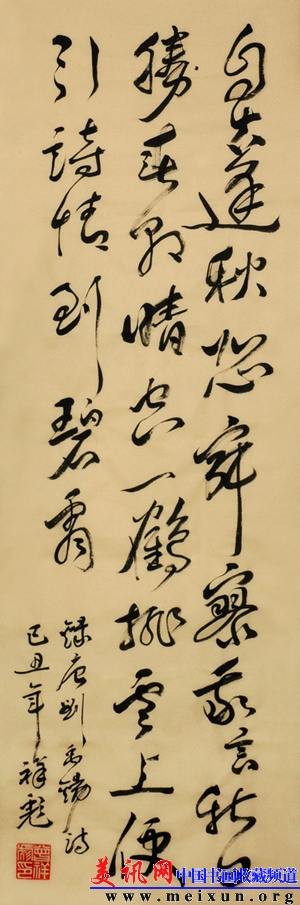 自古逢秋悲寂寥我言秋日
勝春朝晴空一鶴排雲上便
引詩情到碧霄
錄唐劉禹錫詩
己丑年祥彪
美讯网 中国书画收藏频道
www.meixun.org